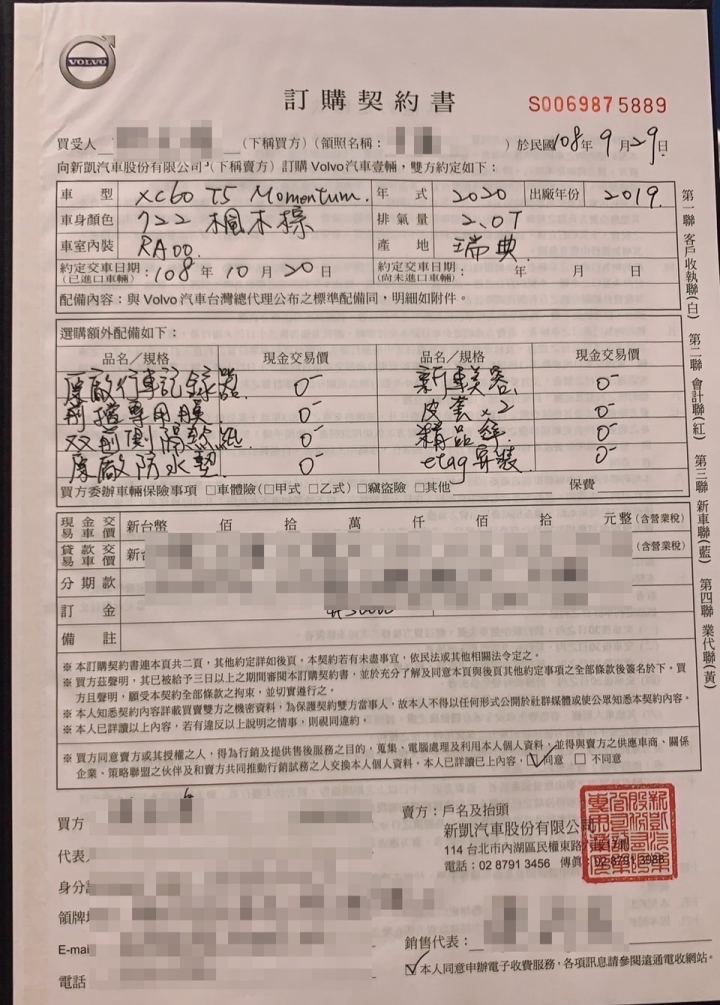 VOLVO
訂購契約書
S0069875889
買受人 (下稱買方) (領照名稱: ) 於民國108年9月29日
向新凱汽車股份有限公司(下稱賣方) 訂購 Volvo汽車壹輛,雙方約定如下:
車型 XC60 T5 Momentum. 年式 2020 出廠年份 2019.
車身顏色 722 楓木棕 排氣量 2.0T
車室內裝 RA00. 產地 瑞典.
約定交車日期:(已進口車輛) 108年10月20日 約定交車日期:(尚未進口車輛) 年 月 日
配備內容:與 Volvo 汽車台灣總代理公布之標準配備同,明細如附件。
選購額外配備如下:
品名/規格 現金交易價 品名/規格 現金交易價
原廠行車記錄器. 0 新車美容 0
前擋專用膜 0 皮套x2 0
双前側隔熱紙 0 精品 0
原廠防水墊 0 etag安裝. 0
買方委辦車輛保險事項 □車體險(□甲式 □乙式) □竊盜險 □其他 保費
現金交易車價 新台幣 佰 拾 萬 仟 佰 拾 元整(含營業稅)
貸款交易車價 新台 (含營業稅)
分期款
訂金
備註
※ 本訂購契約書連本頁共二頁,其他約定詳如後頁。本契約若有未盡事宜,依民法或其他相關法令定之。
※ 買方茲聲明,其已被給予三日以上之期間審閱本訂購契約書,並於充分了解及同意本頁與後頁其他約定事項之全部條款後簽名於下。買
方且聲明,願受本契約全部條款之拘束,並切實遵行之。
※ 本人知悉契約內容詳載買賣雙方之機密資料,為保護契約雙方當事人,故本人不得以任何形式公開於社群媒體或使公眾知悉本契約內容。
※ 本人已詳讀以上內容,若有違反以上說明之情事,則視同違約。
※ 買方同意賣方或其授權之人,得為行銷及提供售後服務之目的,蒐集、電腦處理及利用本人個人資料,並得與賣方之供應車商、關係
企業、策略聯盟之伙伴及和賣方共同推動行銷試務之人交換本人個人資料。本人已詳讀已上內容, ☑同意 □不同意
買方
代表
身分
領牌
E-mai
電話
賣方:戶名及抬頭
新凱汽車股份有限公司
114 台北市內湖區民權東路
電話:02 8791 3456 傳真:02 8791 3988
銷售代表:
☑本人同意申辦電子收費服務,各項訊息請參閱遠通電收網站。
第一聯 客戶收執聯(白) 第二聯 會計聯(紅) 第三聯 新車聯(藍) 第四聯 業代聯(黃)